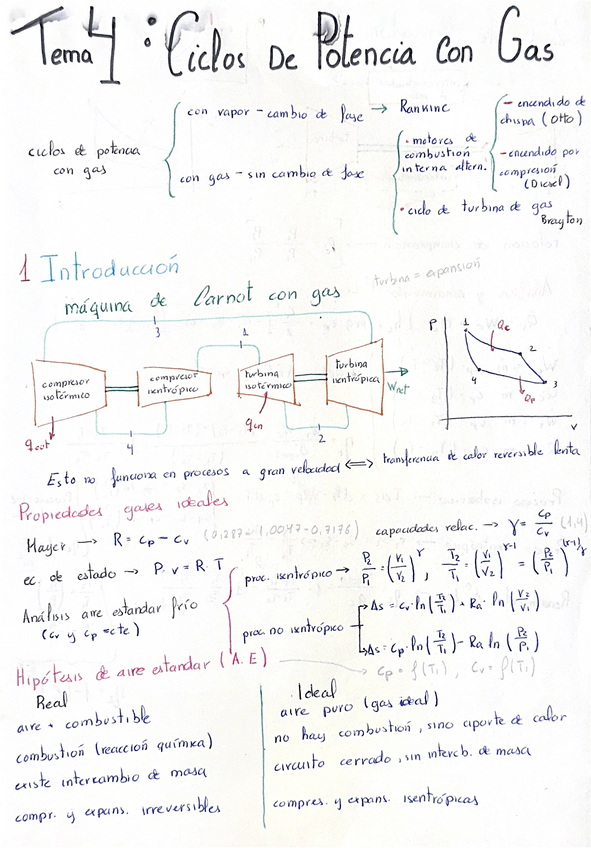 Tema 4: Ciclos De Potencia con Gas
ciclos de potencia con gas
con vapor - cambio de fase → Rankine
con gas - sin cambio de fase
· motores de combustión interna altern.
- encendido de chispa (Otto)
- encendido por compresión (Diesel)
· ciclo de turbina de gas
Brayton
1 Introducción
turbina = expansión
máquina de Carnot con gas
3
1
compresor isotérmico
compresor isentrópico
turbina isotérmico
turbina isentrópica
Wnet
qout
4
qin
2
P
1
Qe
2
4
3
v
Esto no funciona en procesos a gran velocidad ⟺ transferencia de calor reversible lenta
Propiedades gases ideales
Mayer → R = cp - cv (0,287 = 1,0047 - 0,7176) capacidades relac. → γ = cp/cv (1,4)
ec. de estado → P·v = R·T
proc. isentrópico → P2/P1 = (v1/v2)^γ, T2/T1 = (v1/v2)^(γ-1) = (P2/P1)^((γ-1)/γ)
Análisis aire estandar frío
(cv y cp = cte)
proc. no isentrópico
→ Δs = cv·ln(T2/T1) + Ra·ln(v2/v1)
→ Δs = cp·ln(T2/T1) - Ra ln(P2/P1)
Hipótesis de aire estandar (A.E) → cp = f(T1), cv = f(T1)
Real
aire + combustible
combustión (reacción química)
existe intercambio de masa
compr. y expans. irreversibles
Ideal
aire puro (gas ideal)
no hay combustión, sino aporte de calor
circuito cerrado, sin intercb. de masa
compres. y expans. isentrópicas